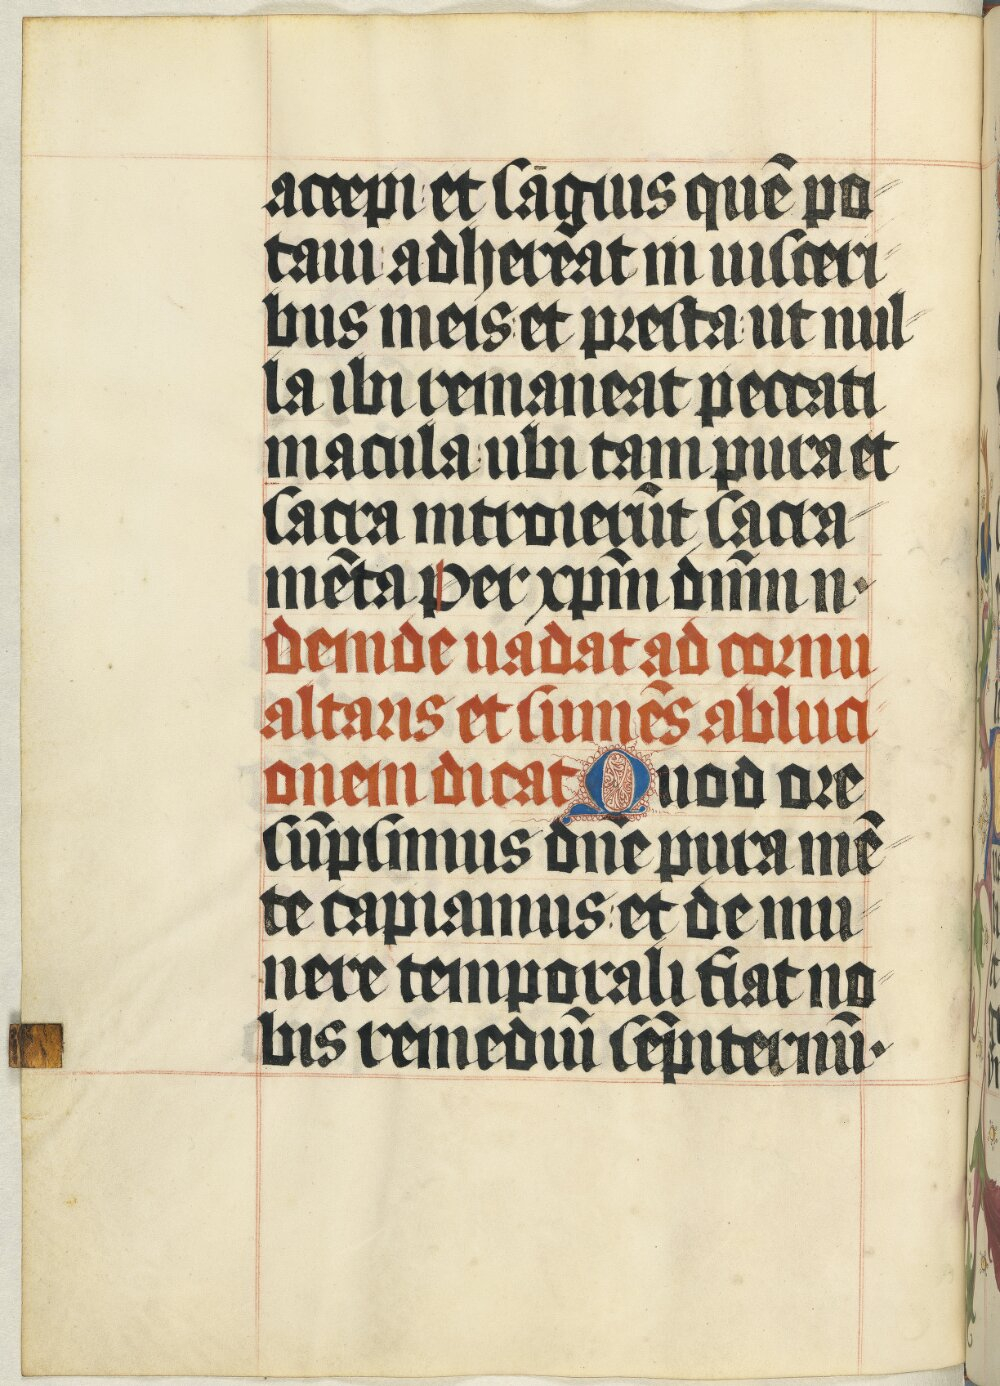 accepi et sāguis quē po
taui adhereāt in uisceri
bus meis et presta ut nul
la ibi remaneat peccati
macula ubi tam pura et
sacra introierūt sacra
mēta Per xpm̄ dnm̄ n.
deinde uadat ad cornu
altaris et sumēs abluci
onem dicat Quod ore
sūpsimus dnē pura mē
te capiamus et de mu
nere temporali fiat no
bis remediū sēpiternū.